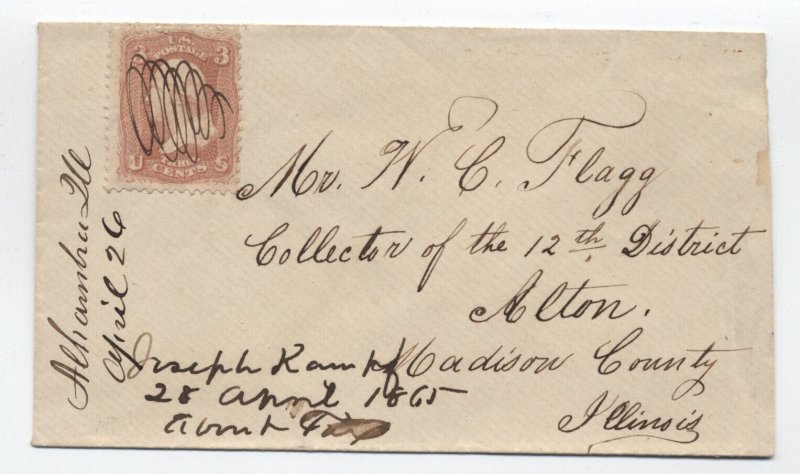 3 U.S. 3
POSTAGE
U CENTS S
Alhambra Ill
April 26
Mr. W. C. Flagg
Collector of the 12th District
Alton.
Madison County
Illinois
Joseph Kampf
28 April 1865
About Tax